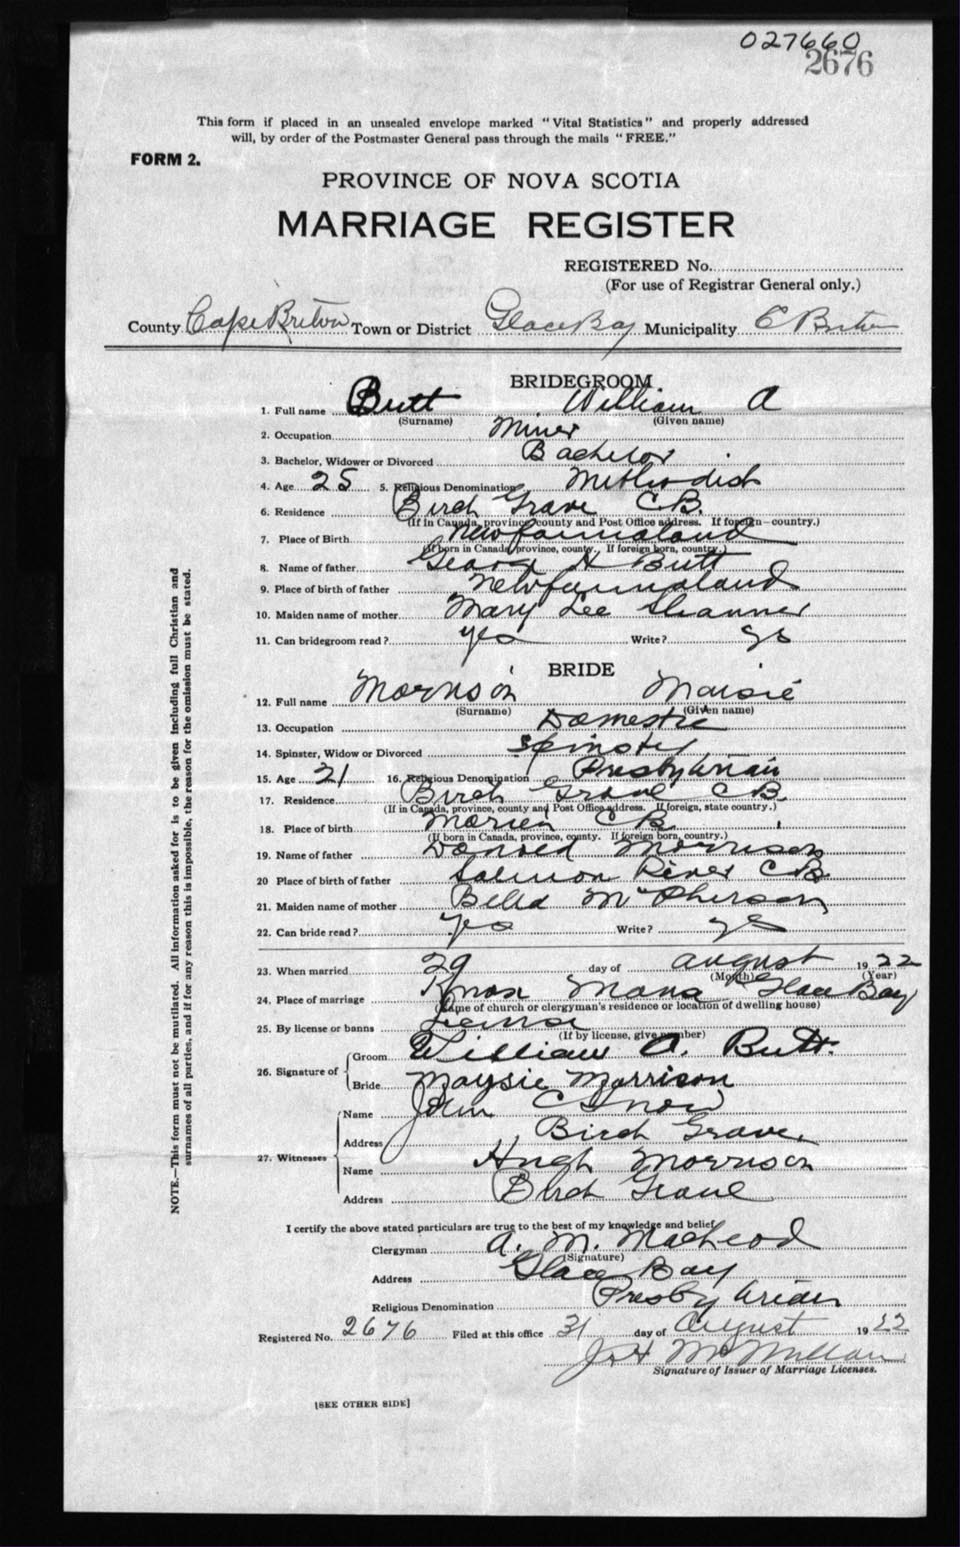 027660
2676
This form if placed in an unsealed envelope marked "Vital Statistics" and properly addressed
will, by order of the Postmaster General pass through the mails "FREE."
FORM 2.
PROVINCE OF NOVA SCOTIA
MARRIAGE REGISTER
REGISTERED No.
(For use of Registrar General only.)
County Cape Breton Town or District Glace Bay Municipality C Breton
BRIDEGROOM
1. Full name Butt William A
(Surname) (Given name)
2. Occupation Miner
3. Bachelor, Widower or Divorced Bachelor
4. Age 25 5. Religious Denomination Methodist
6. Residence Birch Grove C.B.
(If in Canada, province, county and Post Office address. If foreign—country.)
7. Place of Birth Newfoundland
(If born in Canada, province, county. If foreign born, country.)
8. Name of father George H Butt
9. Place of birth of father Newfoundland
10. Maiden name of mother Mary Lee
11. Can bridegroom read? yes Write? yes
BRIDE
12. Full name Morrison Maisie
(Surname) (Given name)
13. Occupation Domestic
14. Spinster, Widow or Divorced Spinster
15. Age 21 16. Religious Denomination Presbyterian
17. Residence Birch Grove C B.
(If in Canada, province, county and Post Office address. If foreign, state country.)
18. Place of birth Morien C B
(If born in Canada, province, county. If foreign born, country.)
19. Name of father Morrison
20 Place of birth of father Salmon River C B.
21. Maiden name of mother Bella McPherson
22. Can bride read? yes Write? yes
23. When married 29 day of August 1922
(Month) (Year)
24. Place of marriage Knox Manse Glace Bay
(Name of church or clergyman's residence or location of dwelling house)
25. By license or banns License
(If by license, give number)
26. Signature of Groom William A. Butt.
Bride Maysie Morrison
27. Witnesses Name John C Snow
Address Birch Grove
Name Hugh Morrison
Address Birch Grove
I certify the above stated particulars are true to the best of my knowledge and belief
Clergyman A. M. MacLeod
(Signature)
Address Glace Bay
Religious Denomination Presbyterian
Registered No. 2676 Filed at this office 31 day of August 1922
McMillan
Signature of Issuer of Marriage Licenses.
[SEE OTHER SIDE]
NOTE.—This form must not be mutilated. All information asked for is to be given including full Christian and
surnames of all parties, and if for any reason this is impossible, the reason for the omission must be stated.